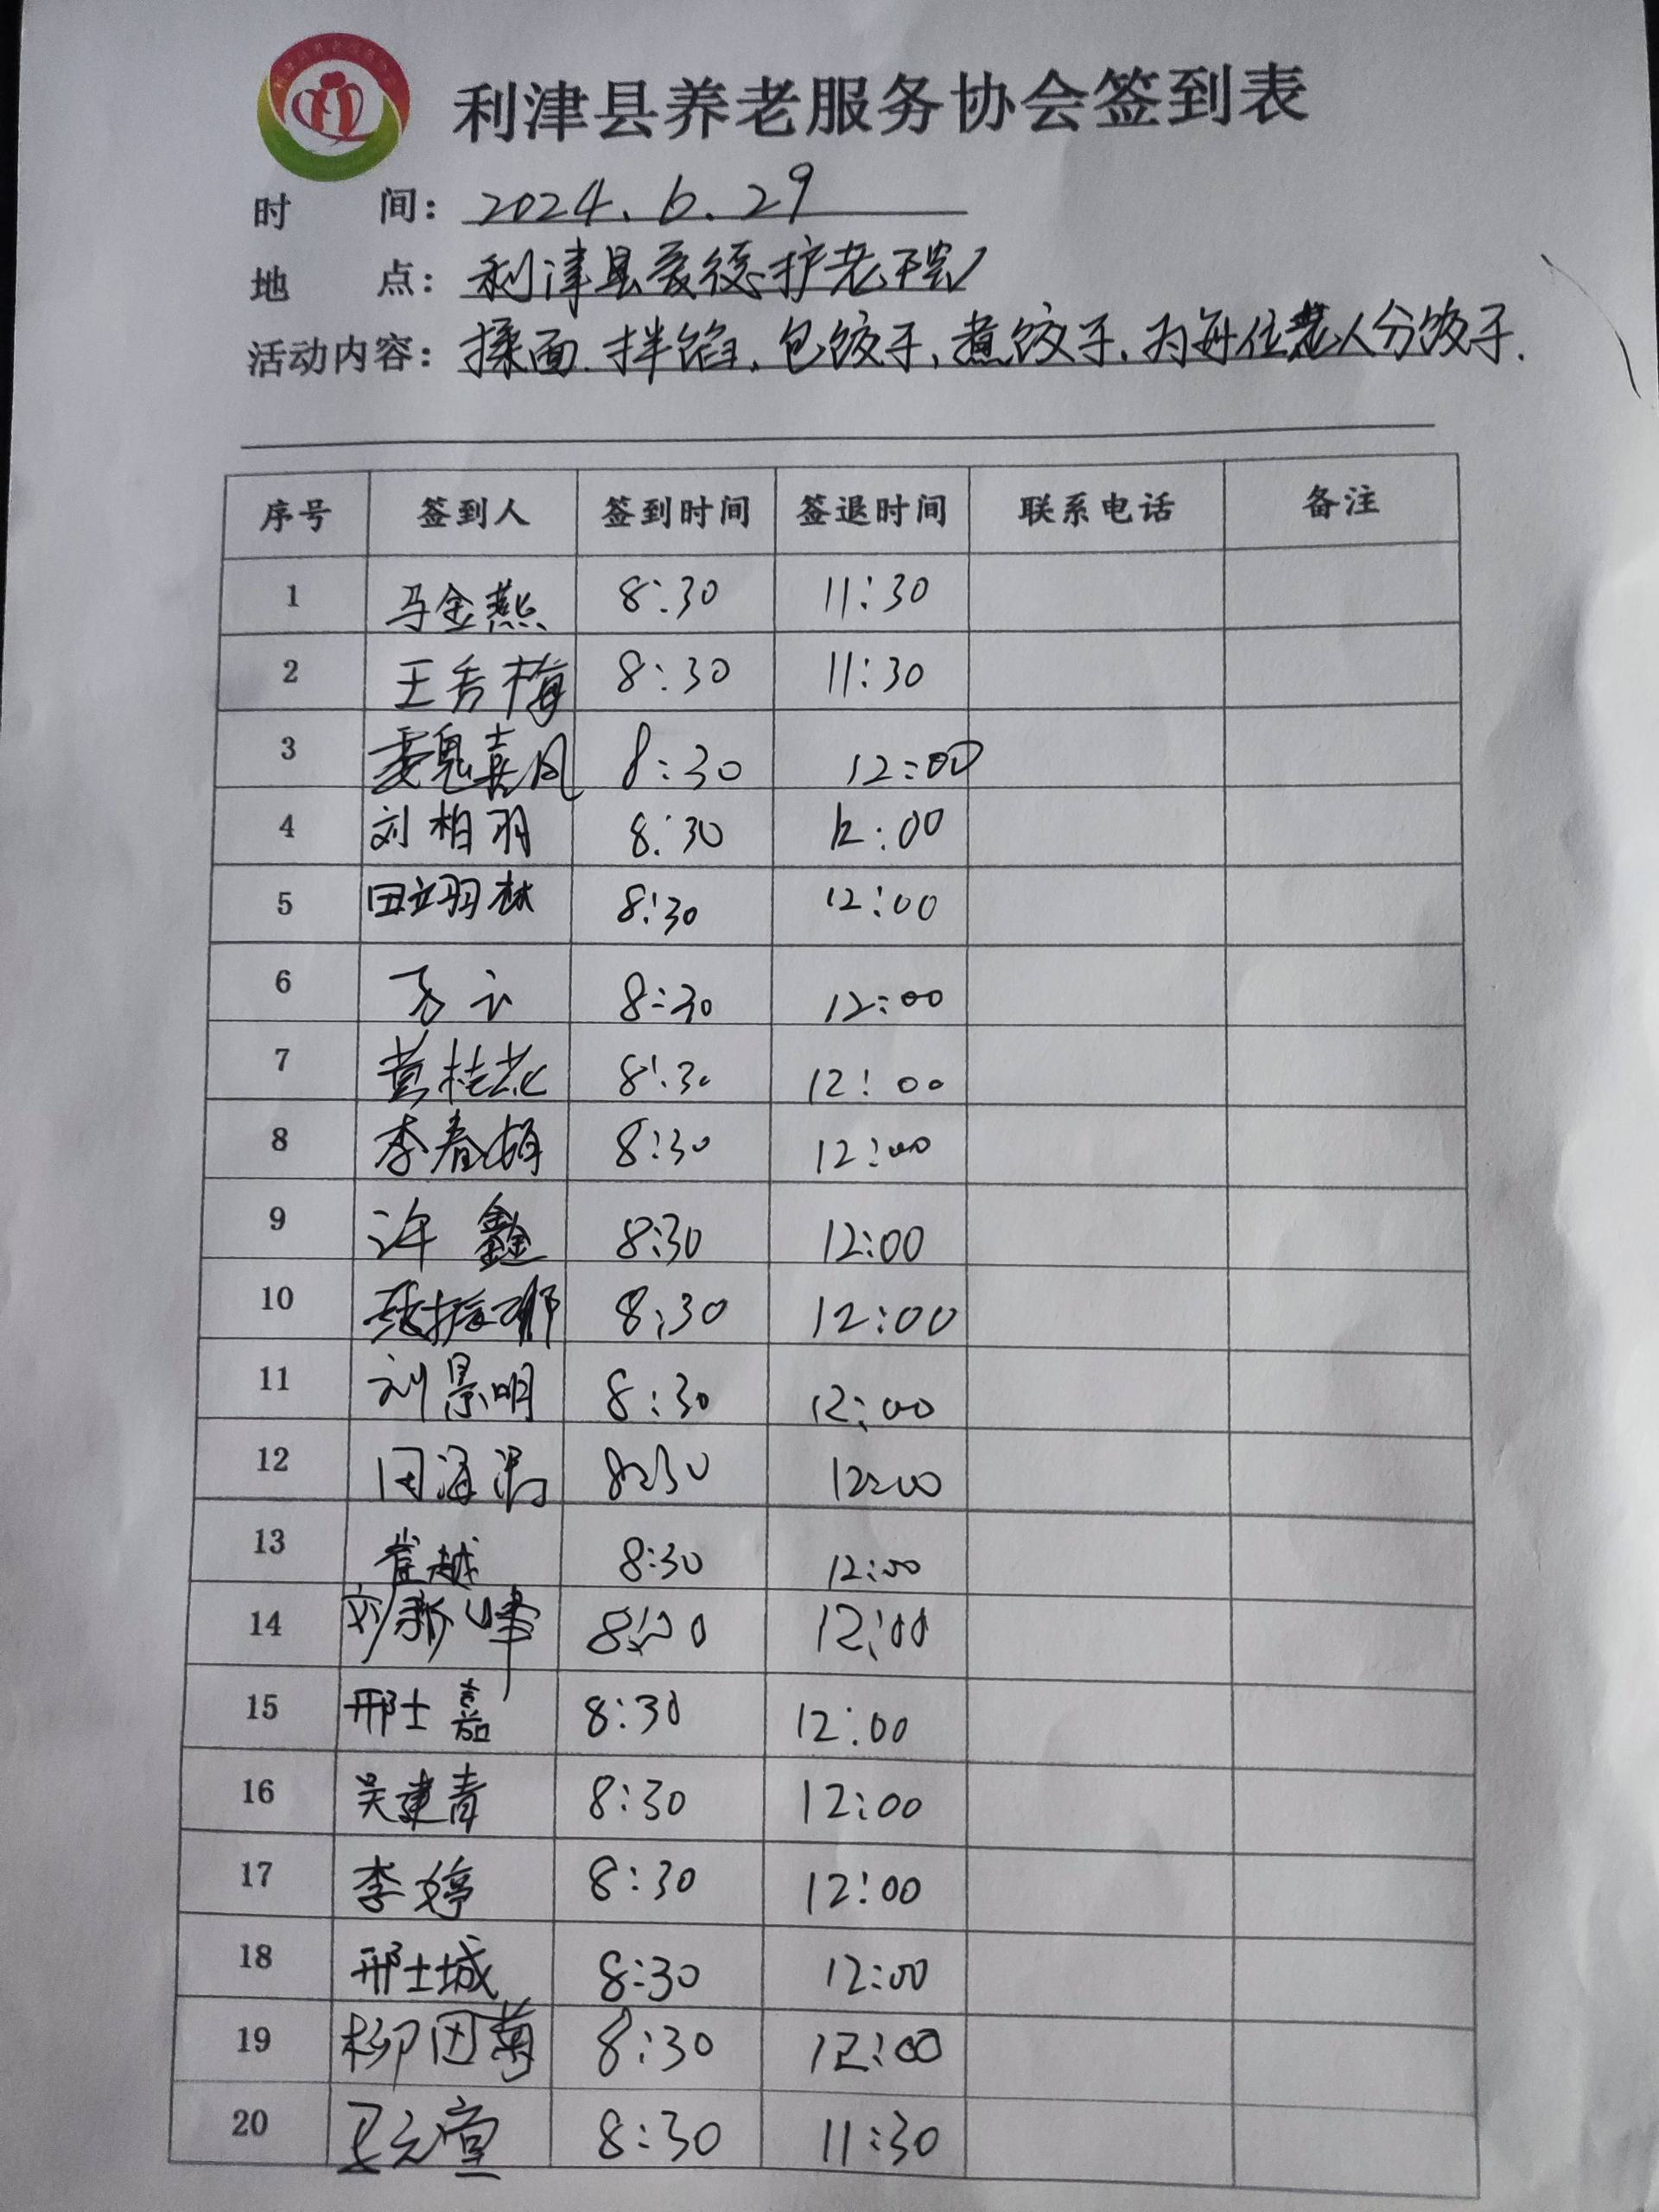 利津县养老服务协会签到表
时 间: 2024.6.29
地 点: 利津县爱德护老院
活动内容: 揉面.拌馅、包饺子、煮饺子.为每位老人分饺子.
序号 签到人 签到时间 签退时间 联系电话 备注
1 马金燕 8:30 11:30
2 王秀梅 8:30 11:30
3 魏喜凤 8:30 12:00
4 刘柏羽 8:30 12:00
5 田翊林 8:30 12:00
6 8:30 12:00
7 桂花 8:30 12:00
8 李春梅 8:30 12:00
9 许鑫 8:30 12:00
10 8:30 12:00
11 刘景明 8:30 12:00
12 田海涛 8:30 12:00
13 崔越 8:30 12:00
14 刘新峰 12:00
15 邢士嘉 8:30 12:00
16 吴建青 8:30 12:00
17 李婷 8:30 12:00
18 邢士城 8:30 12:00
19 柳因菊 8:30 12:00
20 8:30 11:30